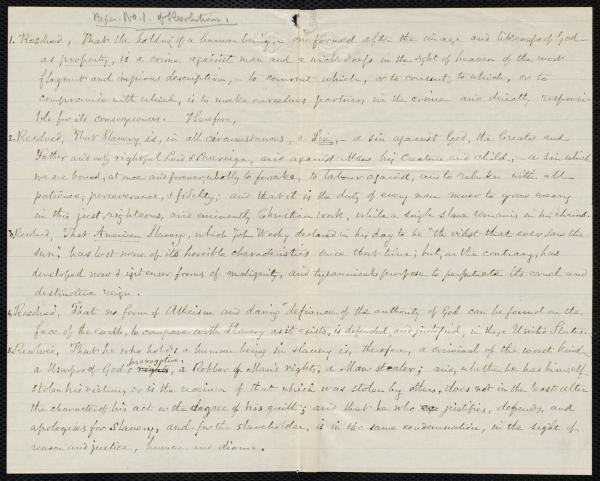 Paper No. 1. of Resolutions.
1. Resolved, That the holding of a human being, – one formed after the image and likeness of God –
as property, is a crime against man and a wickedness in the sight of heaven of the most
flagrant and impious description, – to commit which, or to consent to which, or to
compromise with which, is to make ourselves partners in the crime and directly responsi-
ble for its consequences. Therefore,
2. Resolved, That Slavery is, in all circumstances, a Sin, – a sin against God, the Creator and
Father and only rightful Lord & Sovereign, and against Man his Creature and Child, – a sin which
we are bound, at once and forever, wholly to forsake, to labour against, and to rebuke with all
patience, perseverance, & fidelity; and that it is the duty of every man never to grow weary
in this just, righteous, and eminently Christian work, while a single slave remains in his chains.
3. Resolved, That American Slavery, which John Wesley declared in his day to be "the vilest that ever saw the
sun," has lost none of its horrible characteristics since that time; but, on the contrary, has
developed new & intenser forms of malignity, and tyrannical purpose to perpetuate its cruel and
destructive reign.
4. Resolved, That no form of Atheism and daring defiance of the authority of God can be found on the
face of the earth, to compare with Slavery as it exists, is defended, and justified, in these United States.
5. Resolved, That he who holds a human being in slavery is, therefore, a criminal of the worst kind,
a Usurper of God's prerogative, a Robber of Man's rights, a Man stealer; and, whether he has himself
stolen his victim, or is the receiver of that which was stolen by others, does not in the least alter
the character of his act or the degree of his guilt; and that he who justifies, defends, and
apologises for Slavery, and for the slaveholder, is in the same condemnation, in the sight of
reason and justice, human and divine.